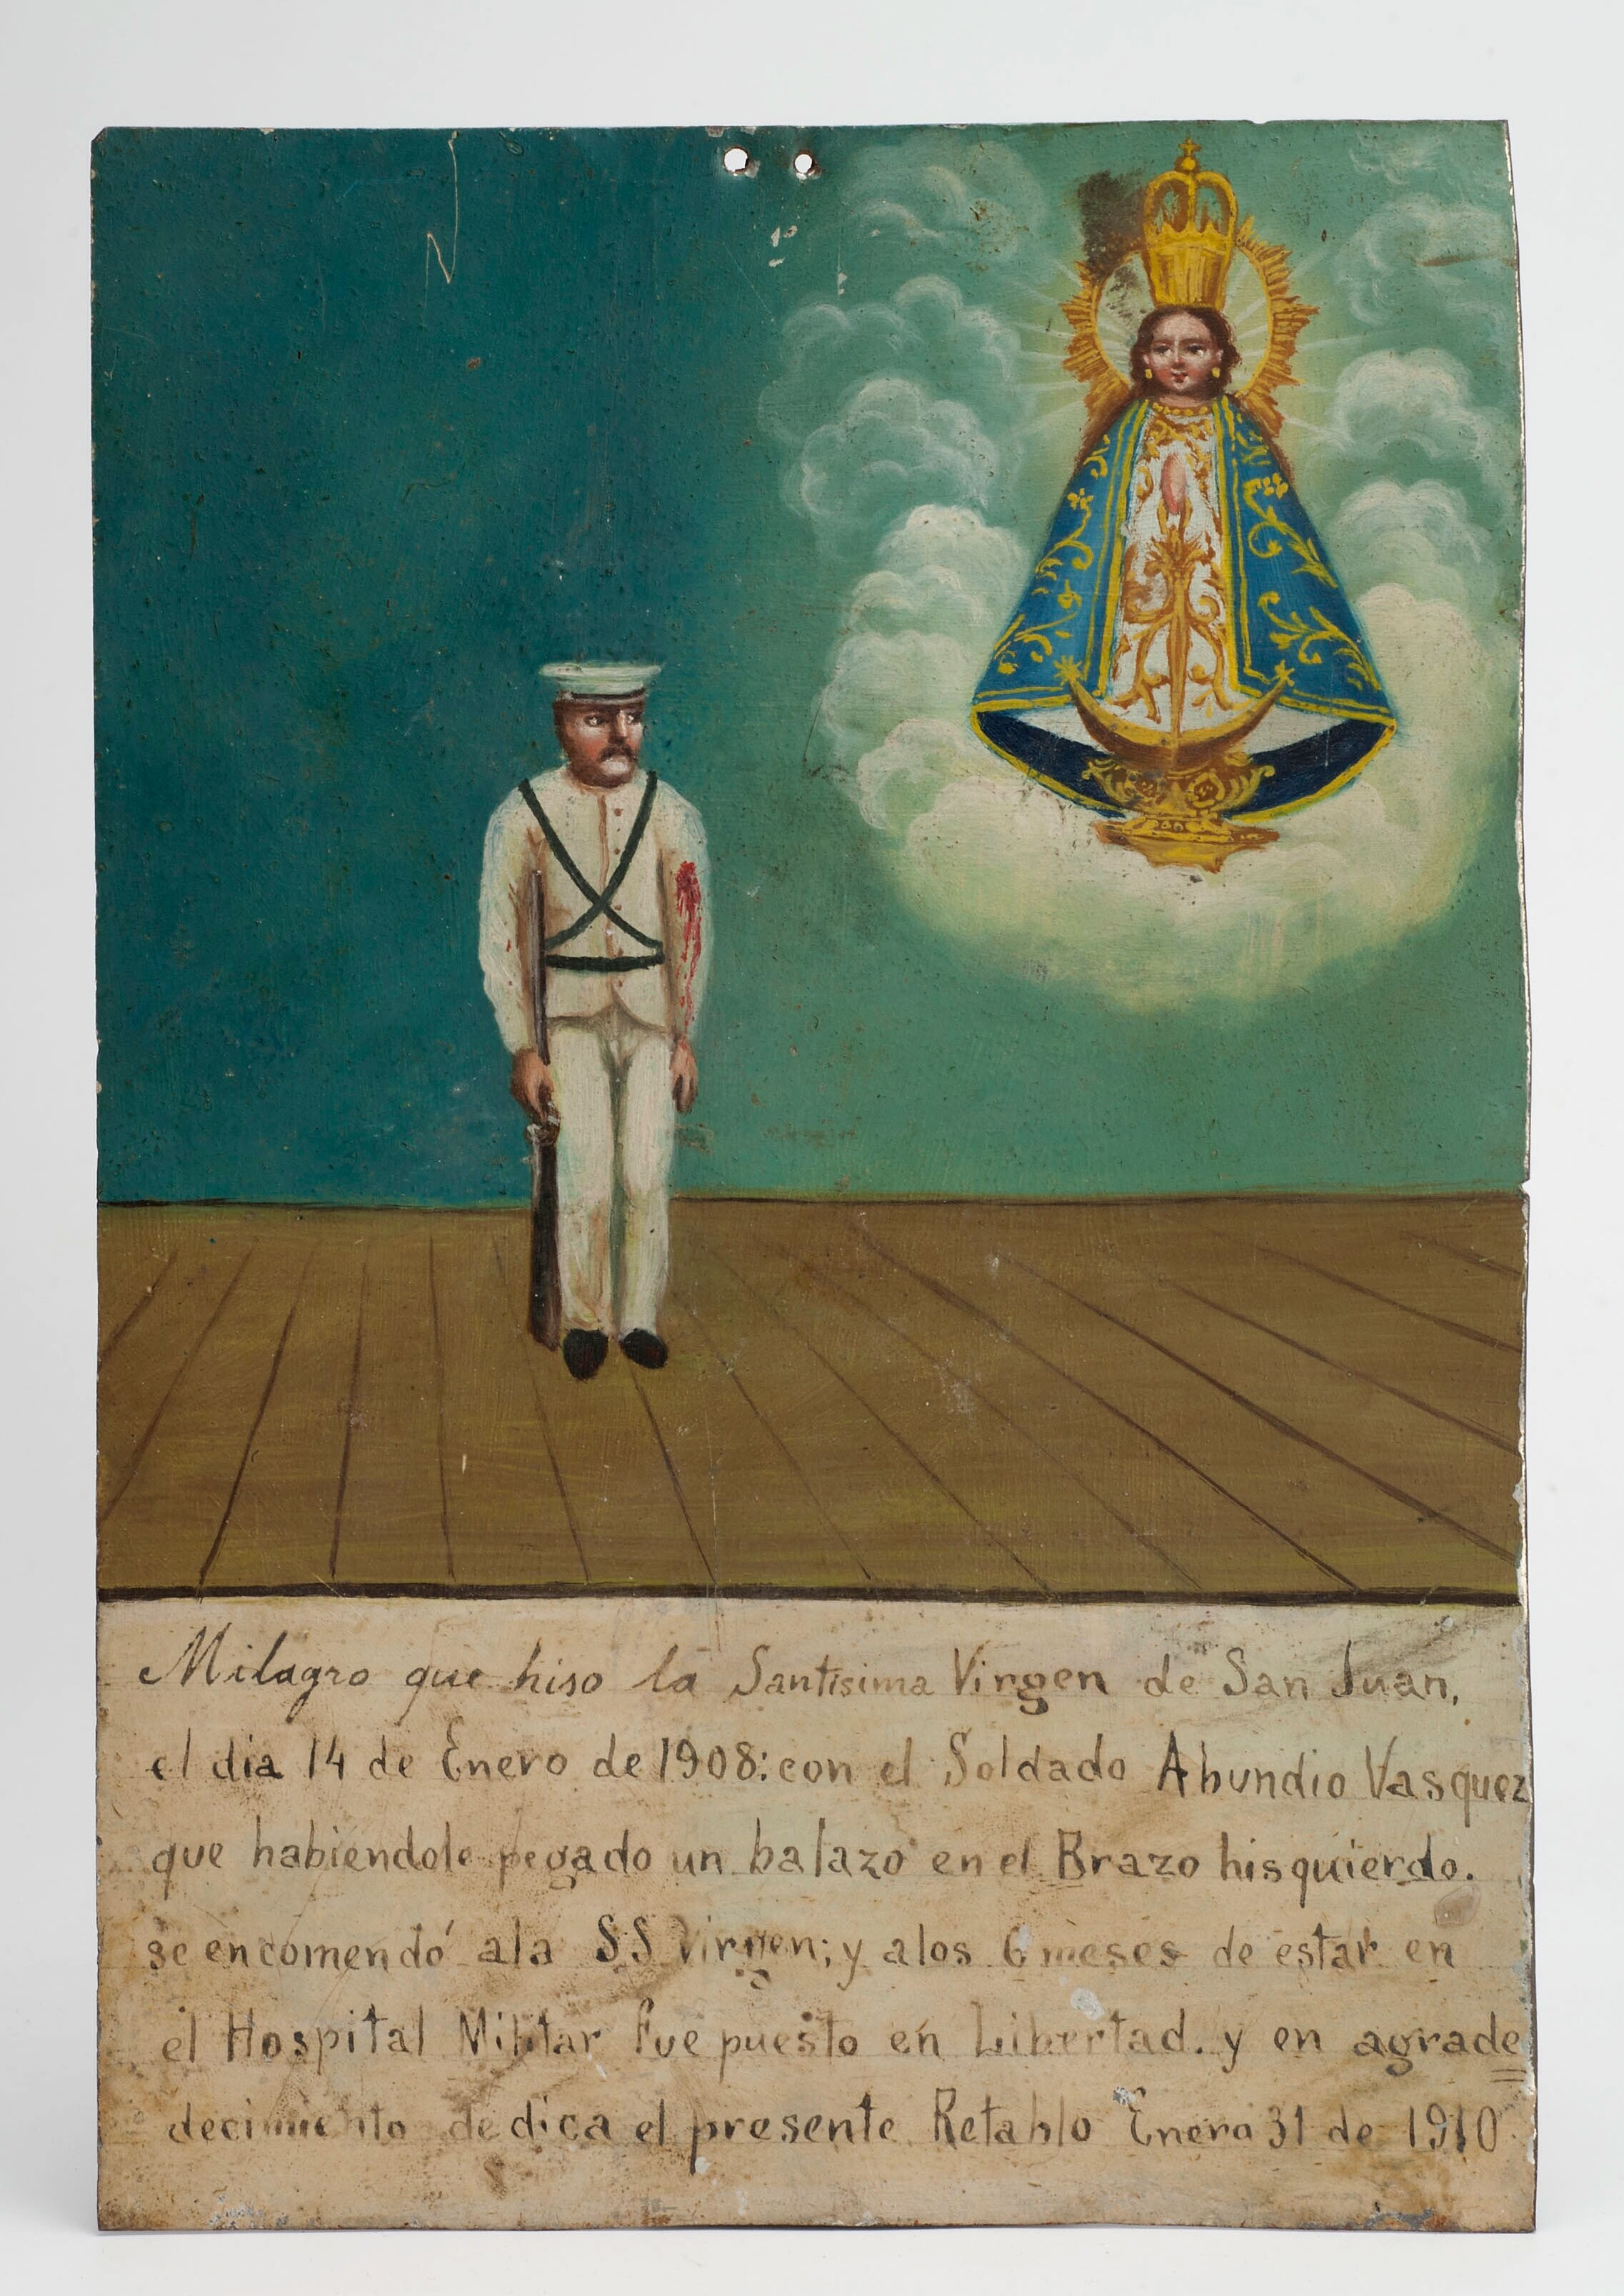 Milagro que hiso la Santisima Virgen de San Juan,
el dia 14 de Enero de 1908: con el Soldado Abundio Vasquez
que habiendole pegado un balazo en el Brazo hisquierdo.
se encomendó ala SS Virgen; y alos 6 meses de estar en
el Hospital Militar Fue puesto en Libertad. y en agrade
decimiento dedica el presente Retablo Enero 31 de 1910